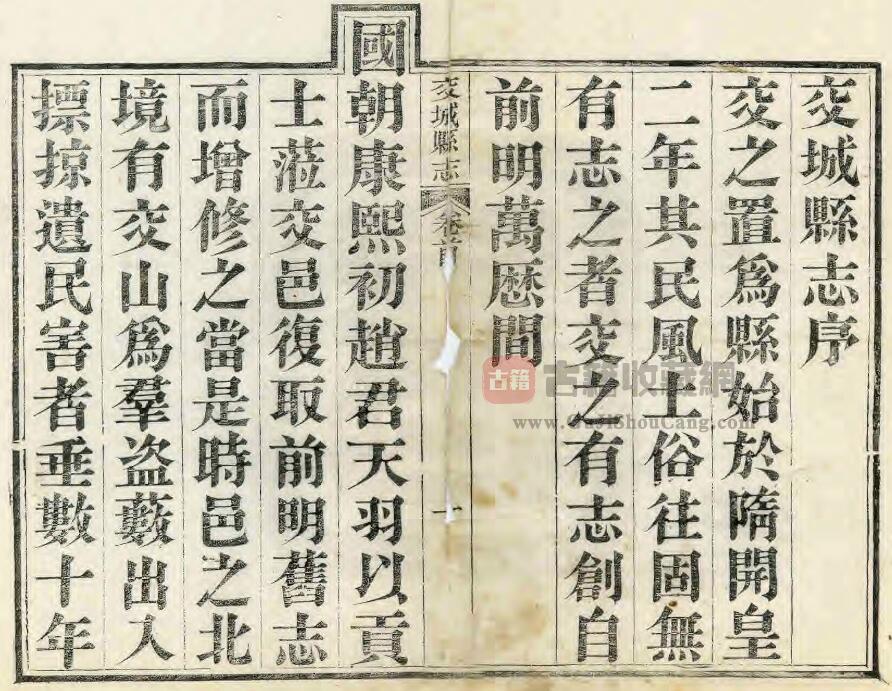 交城縣志序
交之置爲縣始於隋開皇
二年其民風土俗往固無
有志之者交之有志創自
前明萬歷間
交城縣志
卷首
一
國朝康熙初趙君天羽以貢
士蒞交邑復取前明舊志
而增修之當是時邑之北
境有交山爲羣盜藪出入
摽掠遺民害者垂數十年
古籍
古籍收藏網
www.GuJiShouCang.com